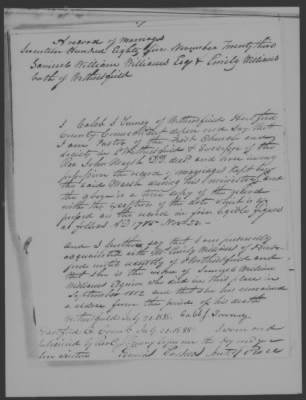 A record of marriages
Seventeen Hundred Eighty five November Twenty third
Samuel William Williams Esqr & Emily Williams
both of Wethersfield
I Caleb J Tenney of Wethersfield Hartford
County Connecticut depose and say that
I am Pastor of the First Church and
Society in Wethersfield & Successor of the
Rev John Marsh DD decd and have in my
possession the record of marriages kept by
the said Marsh during his ministry and
the above is a true copy of the record
with the exception of the date which is ex
pressed on the record in four legible figures
as follows AD 1785 Nov 23
And I further say that I am personally
acquainted with Mrs Emily Williams of
formerly of Wethersfield and
that she is the widow of Samuel William
Williams Esquire who died in this place in
September 1812 and that she has remained
a widow from the period of his death
Wethersfield July 21 1838. Caleb J Tenney
Hartford Co July 21 1838 Sworn and
subscribed by Rev Caleb J Tenney before me the day and year
above written